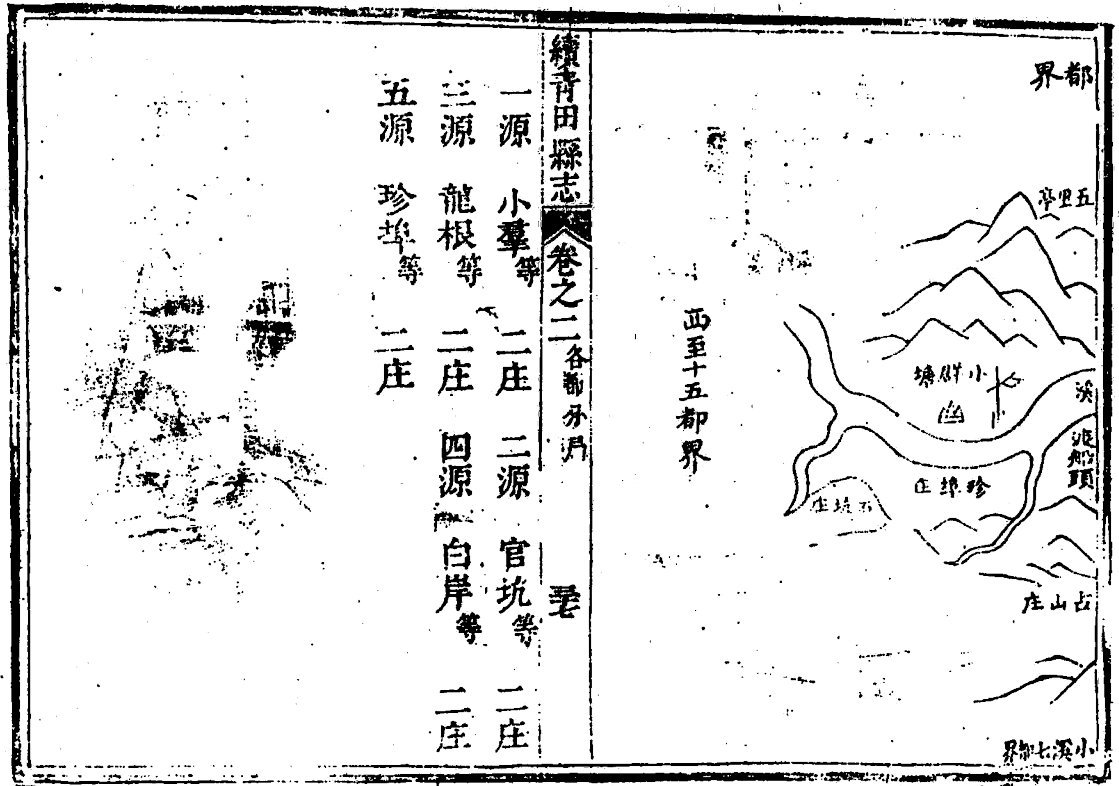 都界
五里亭
小群塘
溪
渡船頭
珍埠庄
石坑庄
占山庄
小溪七都界
西至十五都界
續青田縣志
卷之二
各都分
一源 小羣等 二庄 二源 官坑等 二庄
三源 龍根等 二庄 四源 白岸等 二庄
五源 珍埠等 二庄